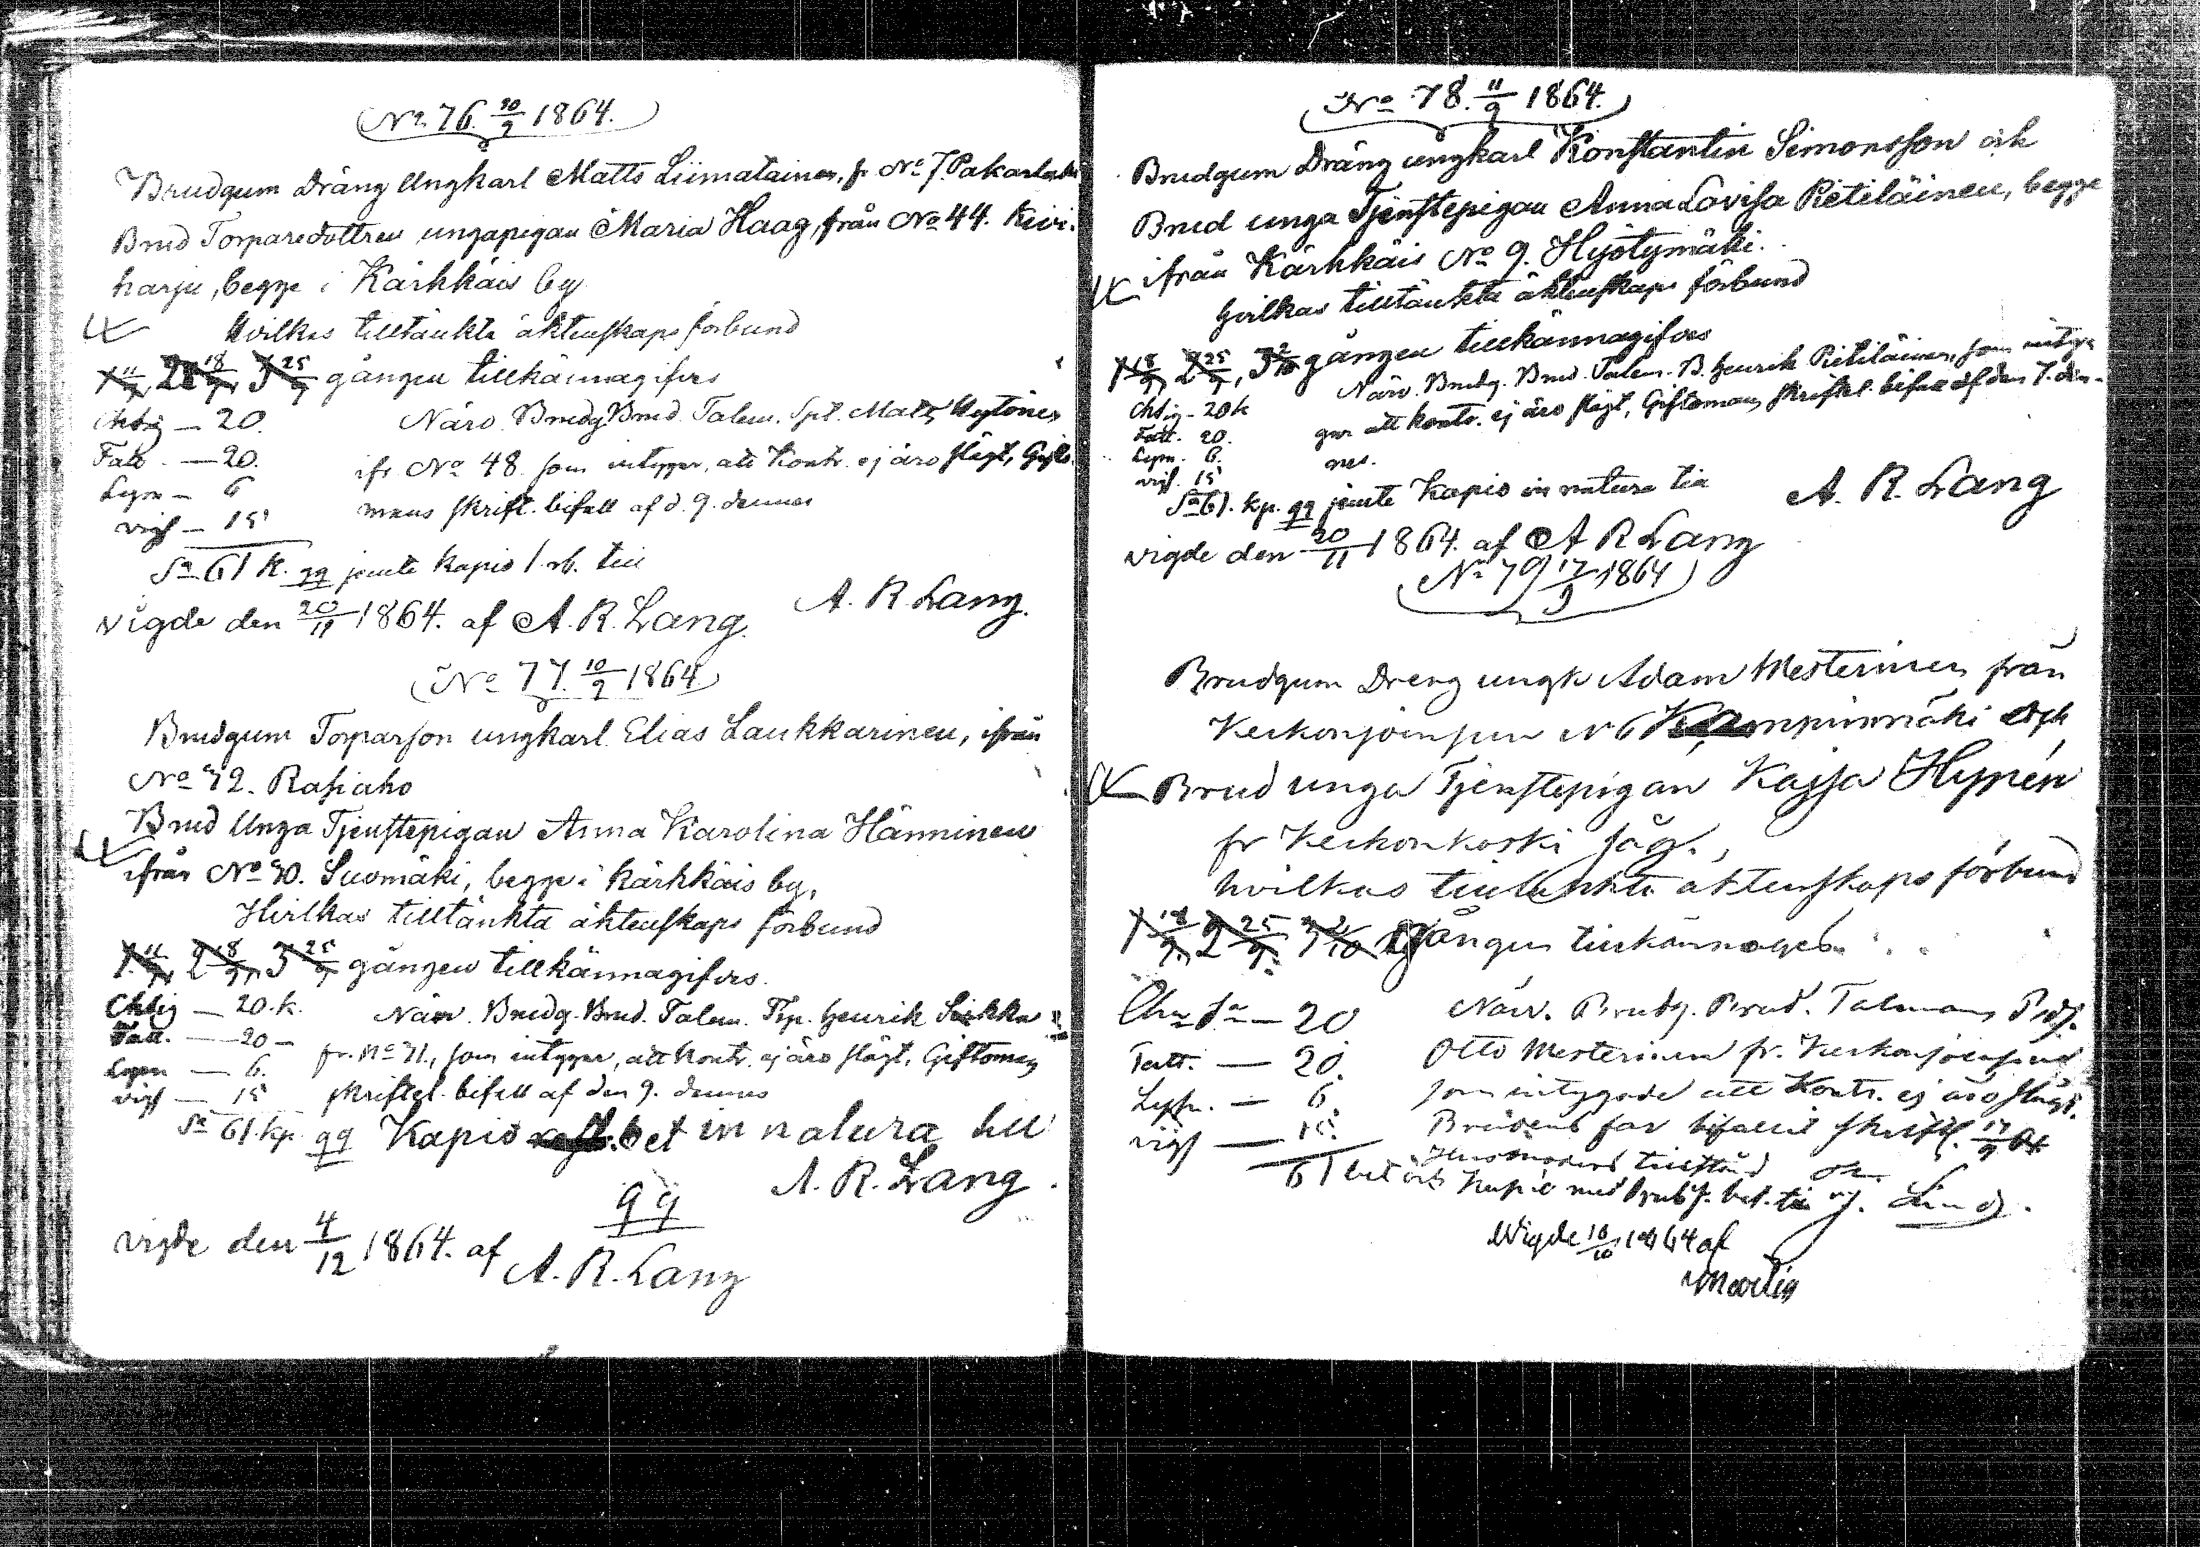 No 76. 10/9 1864.
Brudgum Dräng Ungkarl Matts Liimatainen, fr No 7. Pakarla
Brud Torparedottren ungapigan Maria Haag, från No 44. Kivi-
harju, begge i Kärkkäis by
Hvilkas tilltänkta äktenskaps förbund
1 11/9, 2 18/9, 3 25/9 gången tillkännagifvs
Chtig — 20. Närv. Brudg. Brud. Talem. Spt. Matts Hytönen
Fatt. — 20. ifr No 48. som intygar, att Kontr. ej äro slägt, Gifto-
Lysn — 6 mans skrift. bifall af d. 9. dennes
vigs — 15
Sa 61 K. qq jemte kapio 1 rb. till
A. R. Lang.
vigde den 20/11 1864. af A. R. Lang.
No 77. 10/9 1864
Brudgum Torparson ungkarl Elias Laukkarinen, ifrån
No 72. Rasiaho
Brud Unga Tjenstepigan Anna Karolina Hänninen
ifrån No 30. Suomäki, begge i Kärkkäis by,
Hvilkas tilltänkta äktenskaps förbund
1. 11/9, 2 18/9, 3 25/9 gången tillkännagifvs.
Chtig — 20. k. Närv. Brudg. Brud. Talem. Trp. Henrik Sirkka
Fatt. — 20 — fr. No 71., som intygar, att Kontr. ej äro slägt, Giftomans
Lysn — 6. skriftel. bifall af den 9. dennes
vigs — 15
Sa 61. kp. qq Kapio bet in natura till
A. R. Lang.
qq
vigde den 4/12 1864. af A. R. Lang
No 78. 11/9 1864.
Brudgum Dräng ungkarl Konstantin Simonsson och
Brud unga Tjenstepigan Anna Lovisa Pietiläinen, begge
ifrån Kärkkäis No 9. Hyötymäki.
Hvilkas tilltänkta äktenskaps förbund
1 18/9, 2 25/9, 3 2/10 gången tillkännagifvs
Närv. Brudg. Brud. Talem. B. Henrik Pietiläinen, som inty-
Chtig — 20 k gar att kontr. ej äro slägt, Giftomans skriftel. bifall af den 7. den-
Fatt. 20. nes.
Lysn. 6.
vigs. 15
Sa 61. kp. qq jemte Kapio in natura till
A. R. Lang
vigde den 20/11 1864. af A R Lang
No 79 17/9 1864
Brudgum Dreng ungk Adam Mesterinen från
Keikonjoensun N 6 och
Brud unga Tjenstepigan Kajsa Hypén
fr Keikonkoski såg.,
hvilkas tilltänkta äktenskaps förbund
1 18/9 2 25/9 3 2/10 gången tillkännages
20 Närv. Brudg. Brud. Talmans
Fatt. — 20. Otto Mesterinen fr. Keikonjoensun
Lysn. — 6. som intygade att Kontr. ej äro slägt.
vigs — 15. Brudens far bifallit skriftl. 17/9 64
Husbondens tillstånd
61 bet och Kapio med bet. till J. Lind.
Wigde 16/10 1864 af
Martin